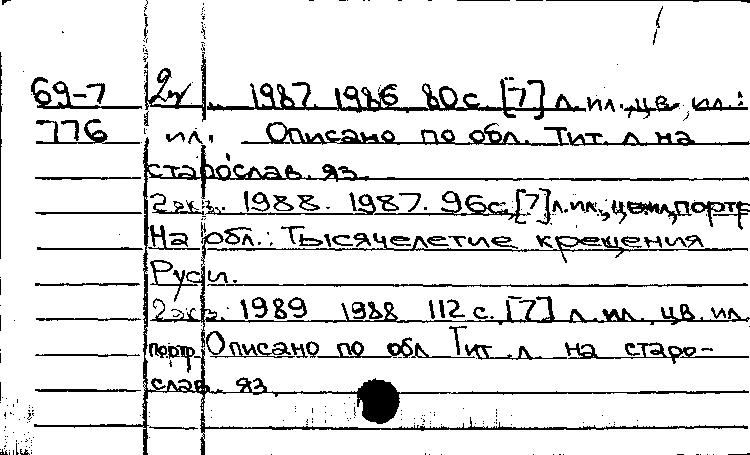 69-7 2эк. 1987. 1986 80с. [7] л. ил., цв. ил.:
776 ил. Описано по обл. Тит. л. на
старослав. яз.
2 экз. 1988. 1987. 96с, [7] л. ил., цв. ил., портр
На обл.: Тысячелетие крещения
Руси.
2 экз. 1989 1988 112 с. [7] л. ил. цв. ил.
портр Описано по обл Тит. л. на старо-
слав. яз.